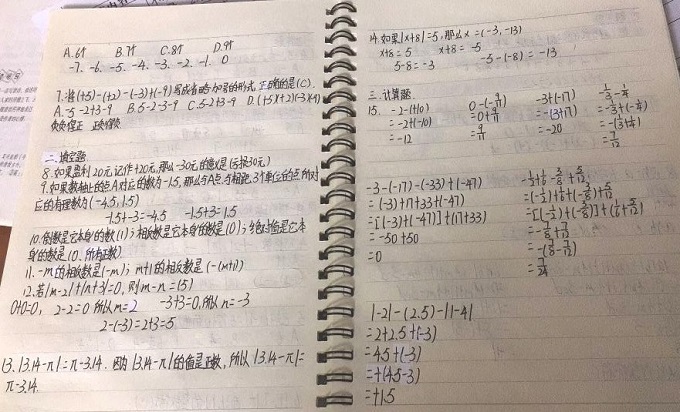 A.6个 B.7个 C.8个 D.9个
-7. -6. -5. -4. -3. -2. -1. 0
7.将(+5)-(+2)-(-3)+(-9)写成省略加号的形式,正确的是(C).
A.-5-2+3-9 B.5-2-3-9 C.5-2+3-9 D.(+5)(+2)(-3)(-9)
负负得正
二.填空题
8.如果盈利20元记作+20元,那么-30元的意义是(亏损30元)
9.如果数轴上的点A对应的数为-1.5,那么与A点与相距3个单位的点所对
应的有理数为(-4.5, 1.5)
-1.5+-3=-4.5 -1.5+3=1.5
10.倒数是它本身的数(1);相反数是它本身的数是(0);绝对值是它本
身的数是(0、所有正数)
11.-m的相反数是(-m); m+1的相反数是(-(m+1))
12.若|m-2|+|n+3|=0,则m-n=(5)
0+0=0, 2-2=0 所以m=2 -3+3=0,所以n=-3
2-(-3)=2+3=5
13.|3.14-π|=π-3.14. 因为|3.14-π|的值是正数,所以|3.14-π|=
π-3.14.
14.如果|x+8|=5,那么x=(-3,-13)
x+8=5 x+8=-5
5-8=-3 -5-(-8)=-13
三.计算题.
15. -2-(+10) 0-(-9/11) -3+(-17) 1/3-3/4
=-2+(-10) =0+9/11 =-(3+17)
=-12 =9/11 =-20
-3-(-17)-(-33)+(-47)
=(-3)+17+33+(-47)
=[(-3)+(-47)]+(17+33)
=-50+50
=0
-1/2+1/6-3/8+5/12
=(-1/2)+1/6+(-3/8)+5/12
=[(-1/2)+(-3/8)]+(1/6+5/12)
=-7/8+7/12
=-(7/8-7/12)
=7/24
|-2|-(-2.5)-|1-4|
=2+2.5+(-3)
=4.5+(-3)
=+(4.5-3)
=+1.5